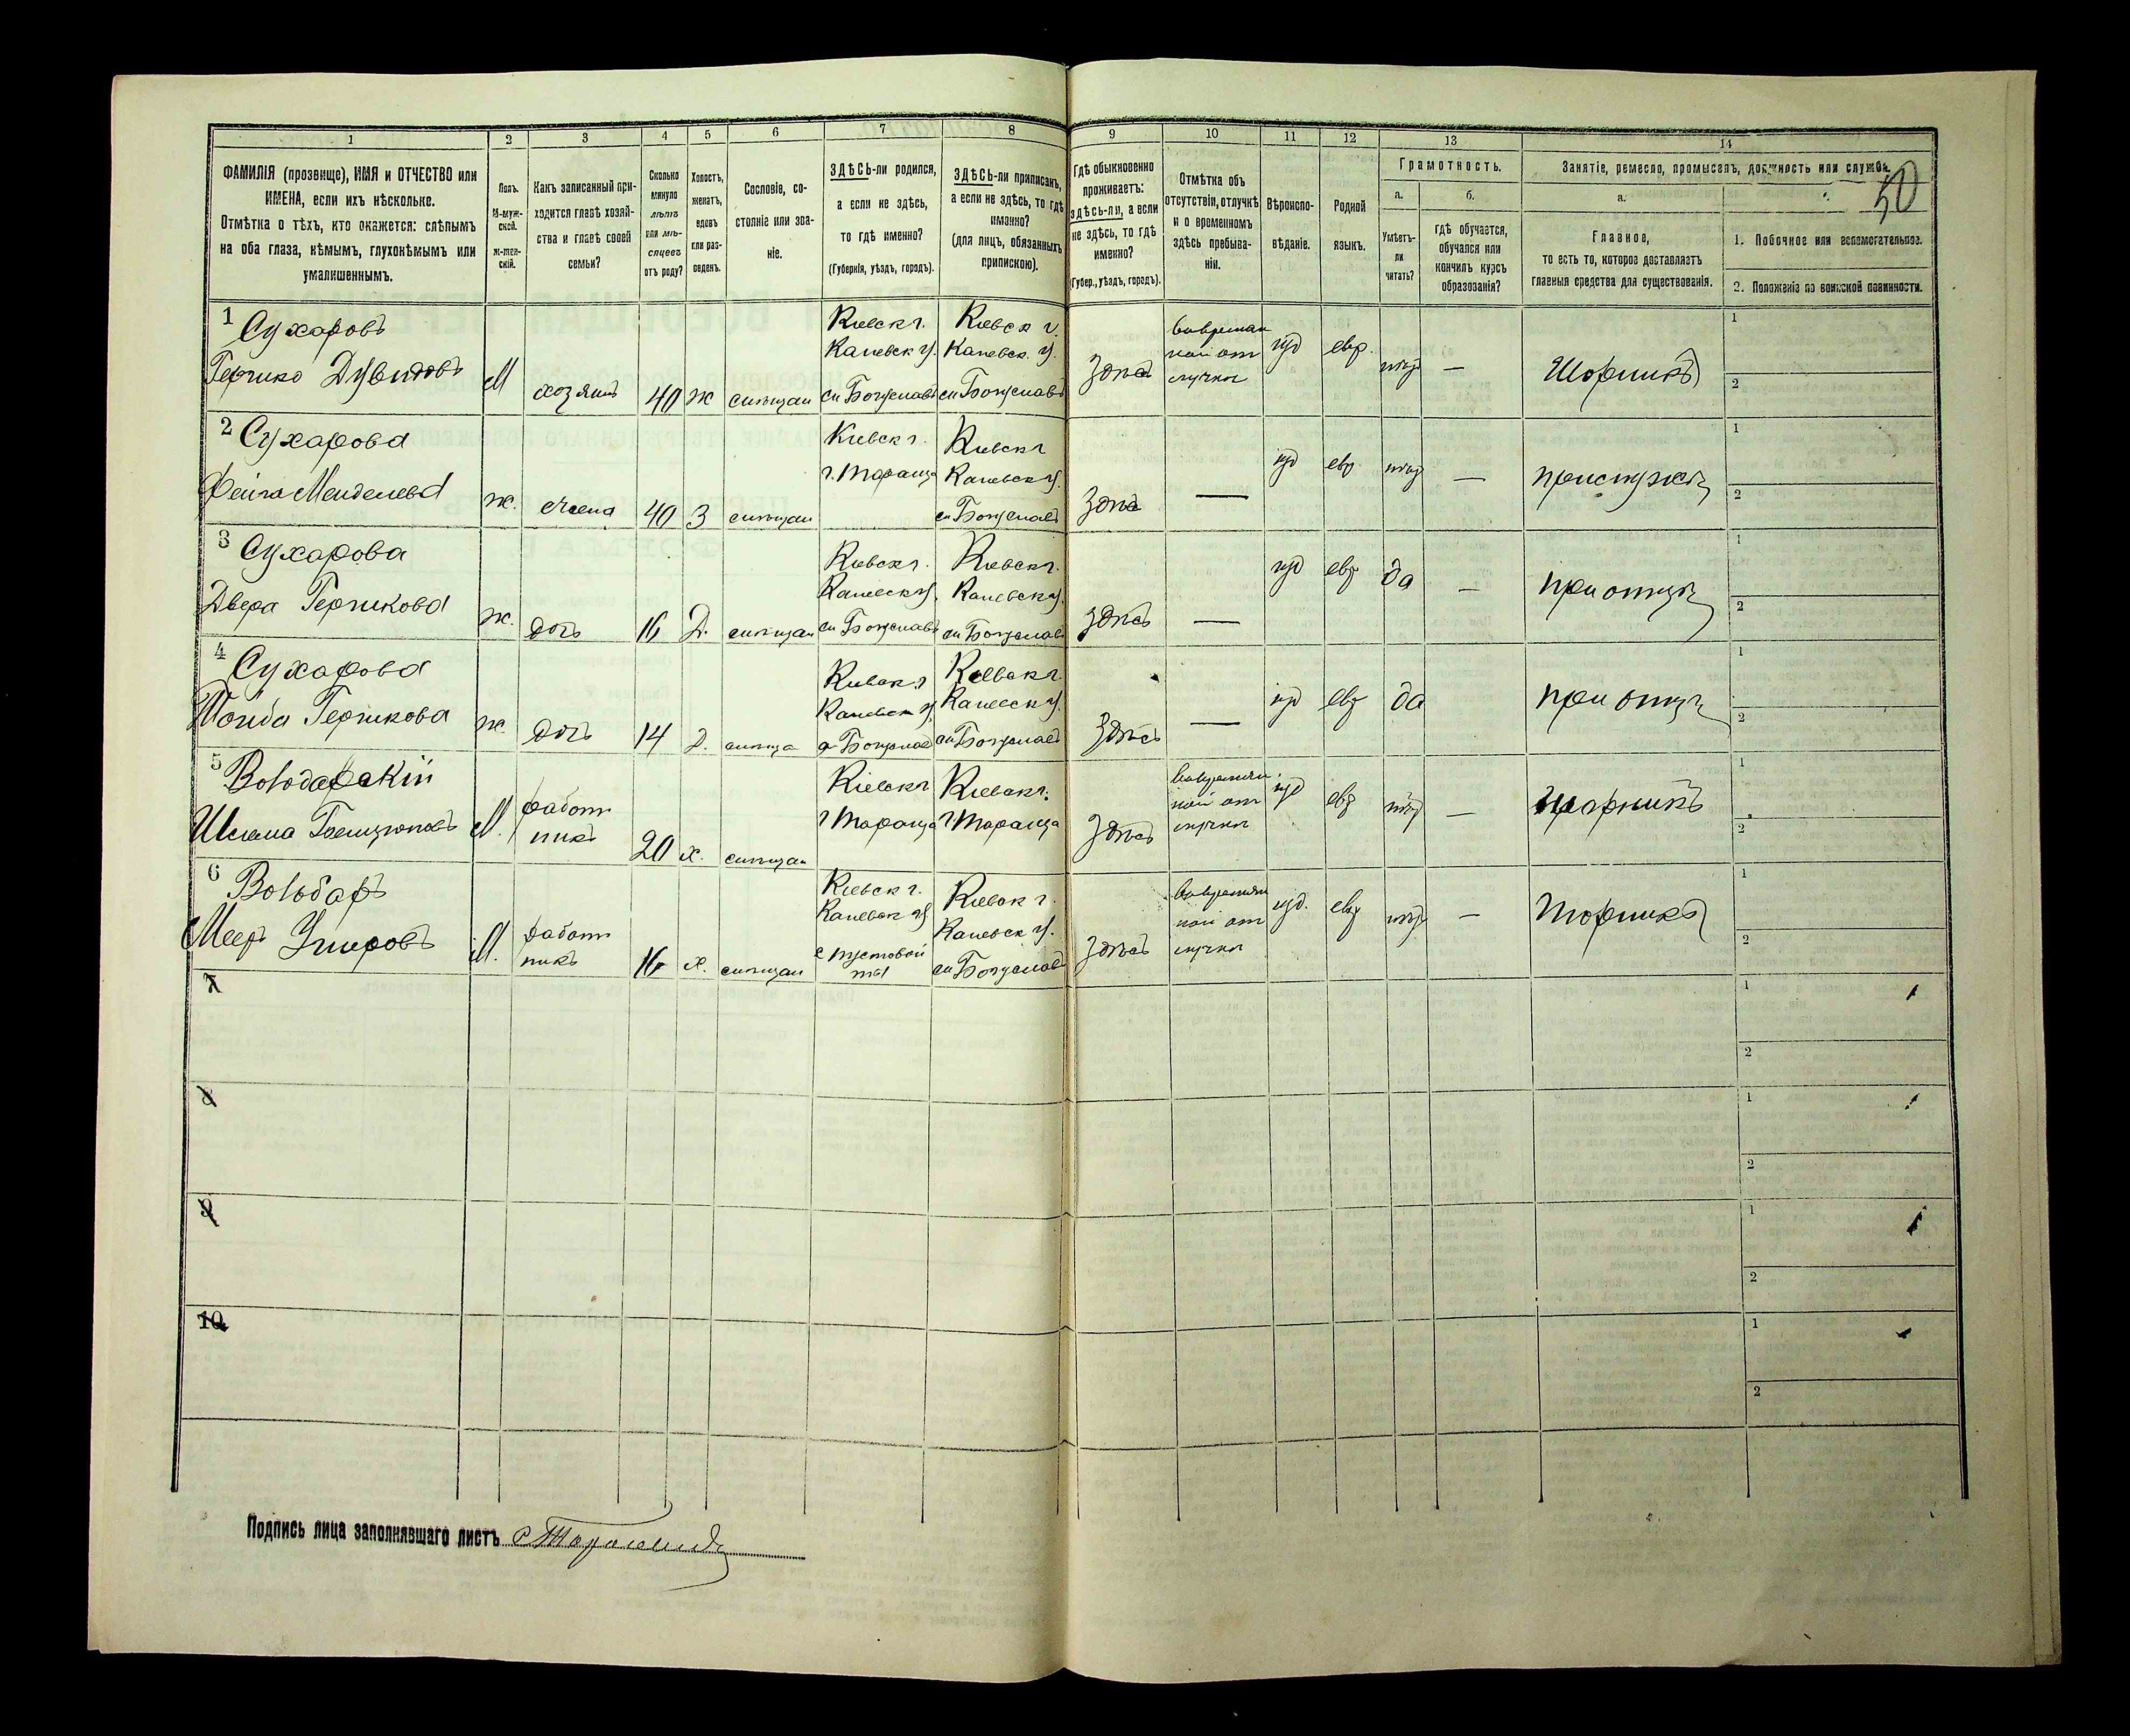 1 2 3 4 5 6 7 8 9 10 11 12 13 14
ФАМИЛІЯ (прозвище), ИМЯ и ОТЧЕСТВО или
ИМЕНА, если ихъ нѣсколько.
Отмѣтка о тѣхъ, кто окажется: слѣпымъ
на оба глаза, нѣмымъ, глухонѣмымъ или
умалишеннымъ.
Полъ.
М-муж-
ской.
Ж-жен-
скій.
Какъ записанный при-
ходится главѣ хозяй-
ства и главѣ своей
семьи?
Сколько
минуло
лѣтъ
или мѣ-
сяцевъ
отъ роду?
Холостъ,
женатъ,
вдовъ
или раз-
веденъ.
Сословіе, со-
стояніе или зва-
ніе.
ЗДѢСЬ-ли родился,
а если не здѣсь,
то гдѣ именно?
(Губернія, уѣздъ, городъ).
ЗДѢСЬ-ли приписанъ,
а если не здѣсь, то гдѣ
именно?
(для лицъ, обязанныхъ
припискою).
Гдѣ обыкновенно
проживаетъ:
здѣсь-ли, а если
не здѣсь, то гдѣ
именно?
(Губер., уѣздъ, городъ).
Отмѣтка объ
отсутствіи, отлучкѣ
и о временномъ
здѣсь пребыва-
ніи.
Вѣроиспо-
вѣданіе.
Родной
языкъ.
Грамотность.
а.
Умѣетъ-
ли
читать?
б.
гдѣ обучается,
обучался или
кончилъ курсъ
образованія?
Занятіе, ремесло, промыселъ, должность или служба.
50
а.
Главное,
то есть то, которое доставляетъ
главныя средства для существованія.
1. Побочное или вспомогательное.
2. Положеніе по воинской повинности.
1 Сухаровъ
Гершко Дувидовъ
М
хозяинъ
40
ж
Кіевск г.
Каневск у.
Богуславъ
Кіевск г.
Каневск. у.
Богуславъ
здѣсь
іуд
евр.
—
Шорникъ
1
2
2 Сухарова
Фейга Менделева
ж.
жена
40
З
Кіевск г.
г. Тараща
Кіевск г
Каневск у.
Богуславъ
здѣсь
—
іуд
евр
—
1
2
3 Сухарова
Двера Гершкова
ж.
дочь
16
Д.
Кіевск г.
Каневск у.
Богуславъ
Кіевск г.
Каневск у.
Богуславъ
здѣсь
—
іуд
евр
да
—
при отцѣ
1
2
4 Сухарова
Гершкова
ж.
дочь
14
Д.
Кіевск г
Каневск у.
Богуслав
Кіевск г.
Каневск у.
Богуславъ
здѣсь
—
іуд
евр
да
при отцѣ
1
2
5 Володарскій
Шлема
М.
работ
никъ
20
х.
Кіевск г
г Тараща
Кіевск г.
г Тараща
здѣсь
іуд
евр
—
шорникъ
1
2
6 Вольбаръ
Меер
М.
работ
никъ
16
х.
Кіевск г.
Каневск у
Кіевск г.
Каневск у.
Богуславъ
здѣсь
іуд.
евр
—
Шорникъ
1
2
7
1
2
8
1
2
9
1
2
10
1
2
Подпись лица заполнявшаго листъ